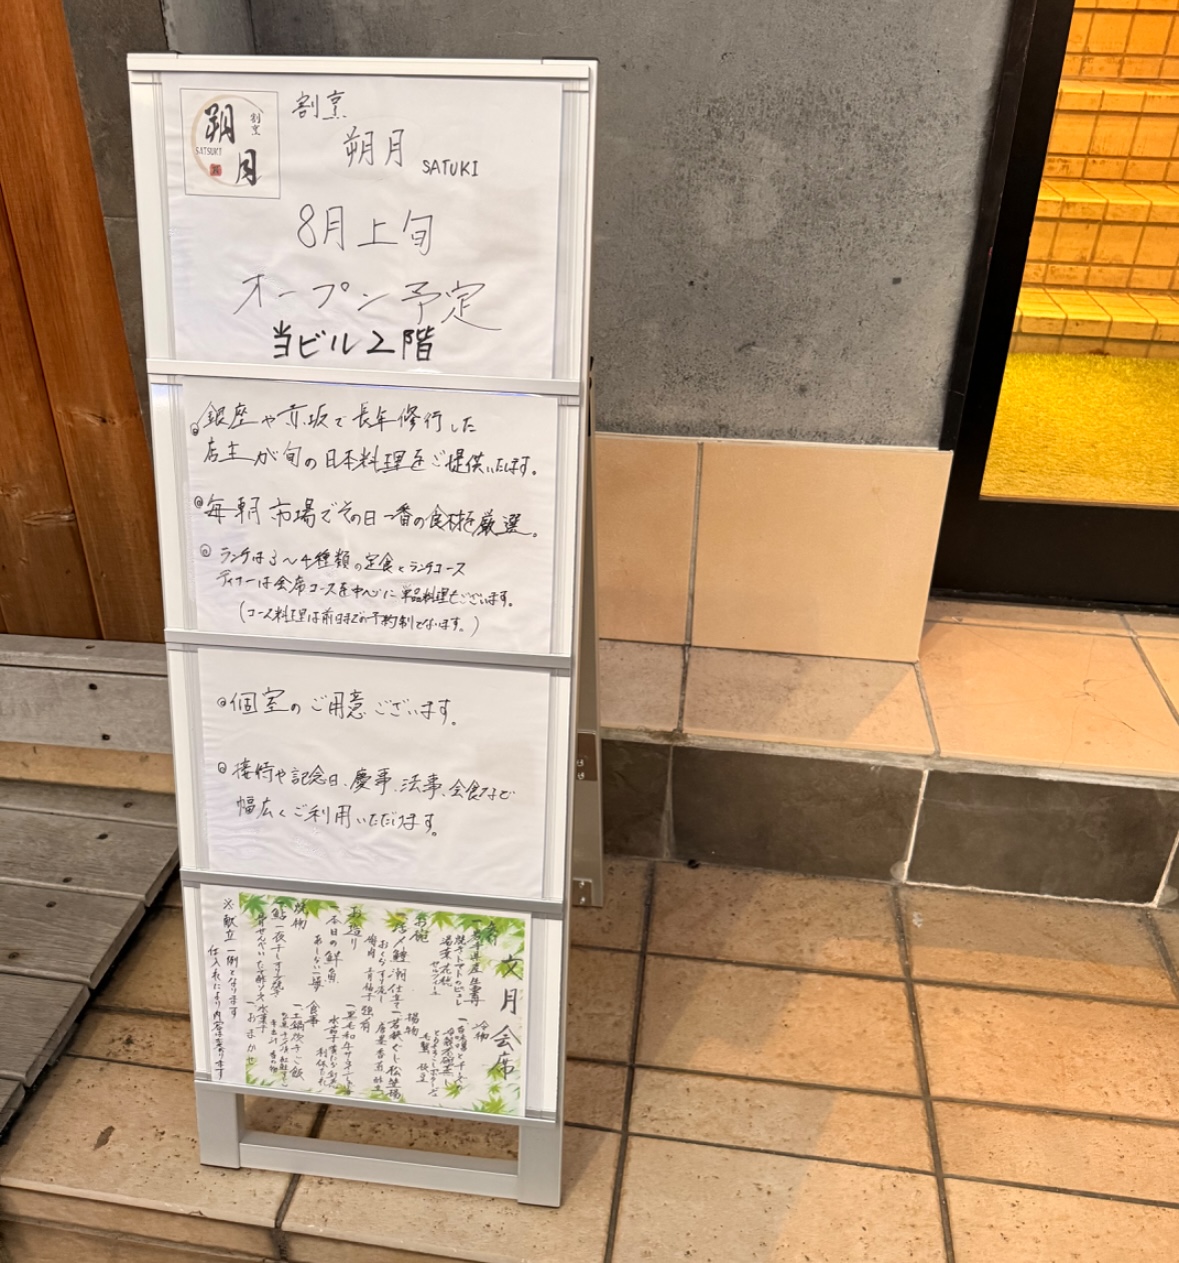 割烹
朔月
SATSUKI
割烹
朔月 SATUKI
8月上旬
オープン予定
当ビル2階
銀座や赤坂で長年修行した
店主が旬の日本料理をご提供いたします。
毎朝市場でその日一番の食材を厳選。
ランチは3〜4種類の定食とランチコース
ディナーは会席コースを中心に単品料理もございます。
(コース料理は前日までの予約制でなります。)
個室のご用意ございます。
接待や記念日、慶事、法事、会食など
幅広くご利用いただけます。
文月会席
お椀
お造り
一本日の鮮魚
あしらい一式
焼物
冷物
揚物
食事
一土鍋炊きご飯
水菓子
一おまかせ
※献立一例となります
仕入れにより内容は変わります